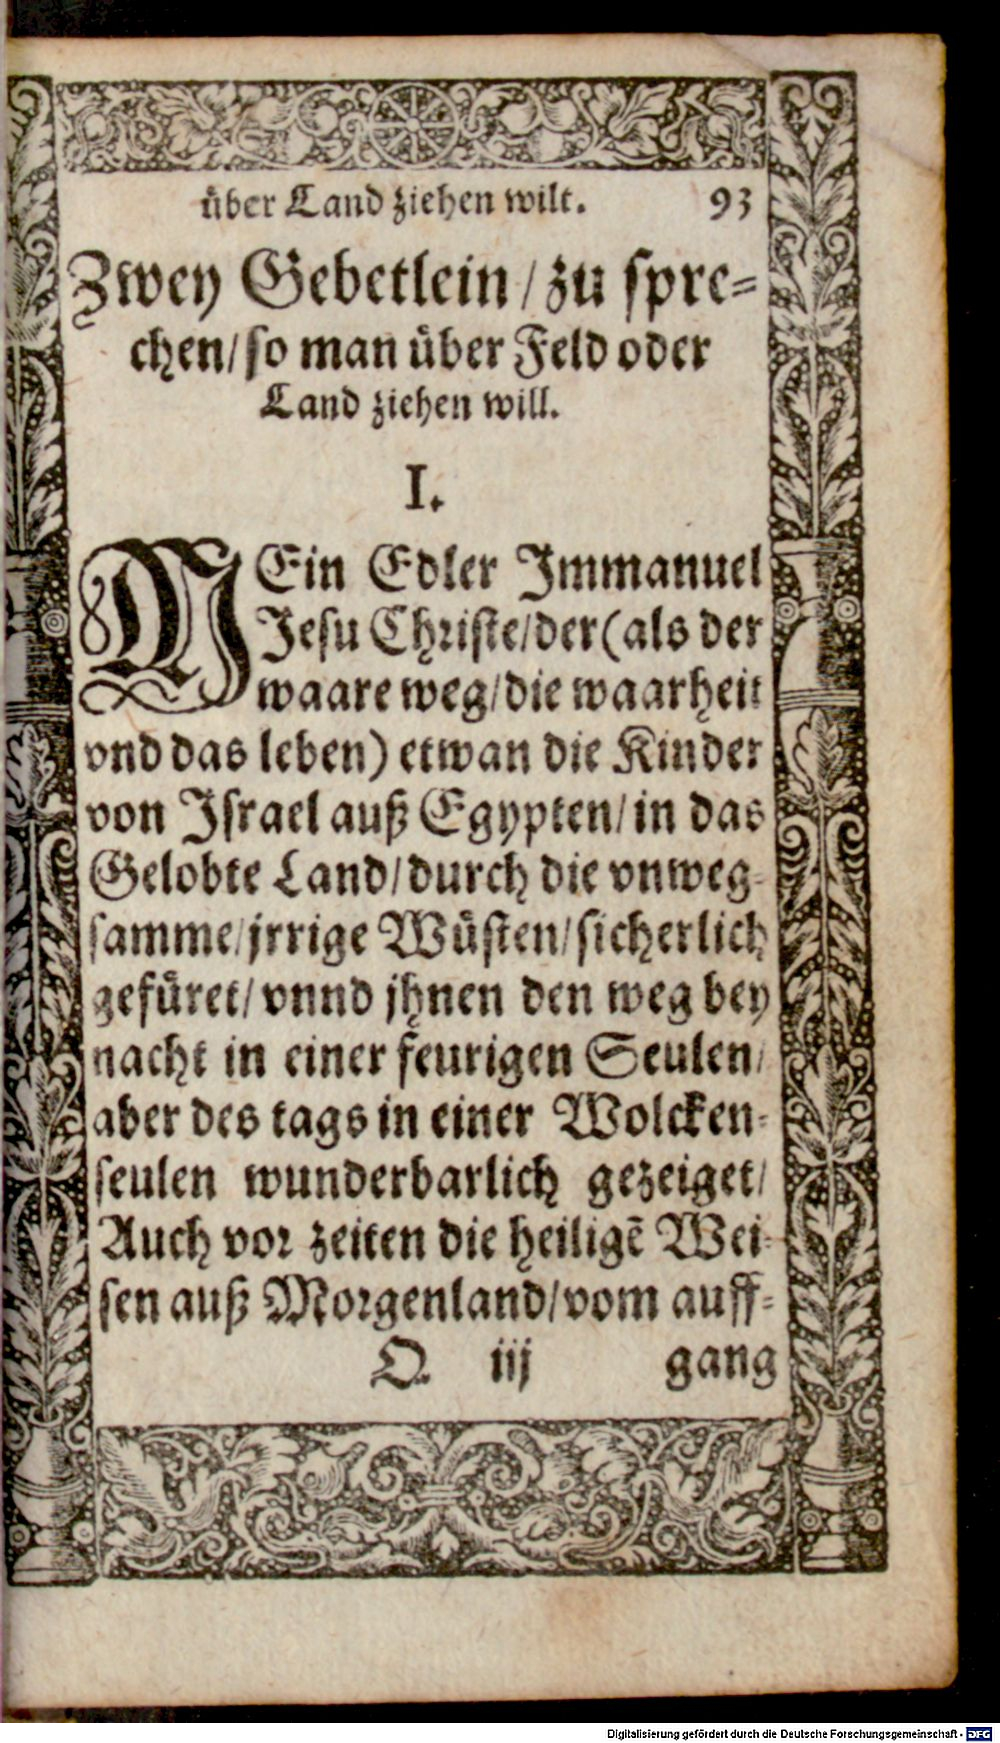 über Land ziehen wilt. 93
Zwey Gebetlein / zu spre=
chen / so man über Feld oder
Land ziehen will.
I.
MEin Edler Immanuel
Jesu Christe / der (als der
waare weg / die waarheit
vnd das leben) etwan die Kinder
von Israel auß Egypten / in das
Gelobte Land / durch die vnweg=
samme / jrrige Wüsten / sicherlich
gefüret / vnnd jhnen den weg bey
nacht in einer feurigen Seulen /
aber des tags in einer Wolcken=
seulen wunderbarlich gezeiget /
Auch vor zeiten die heiligē Wei=
sen auß Morgenland / vom auff=
Q iij gang
Digitalisierung gefördert durch die Deutsche Forschungsgemeinschaft - DFG